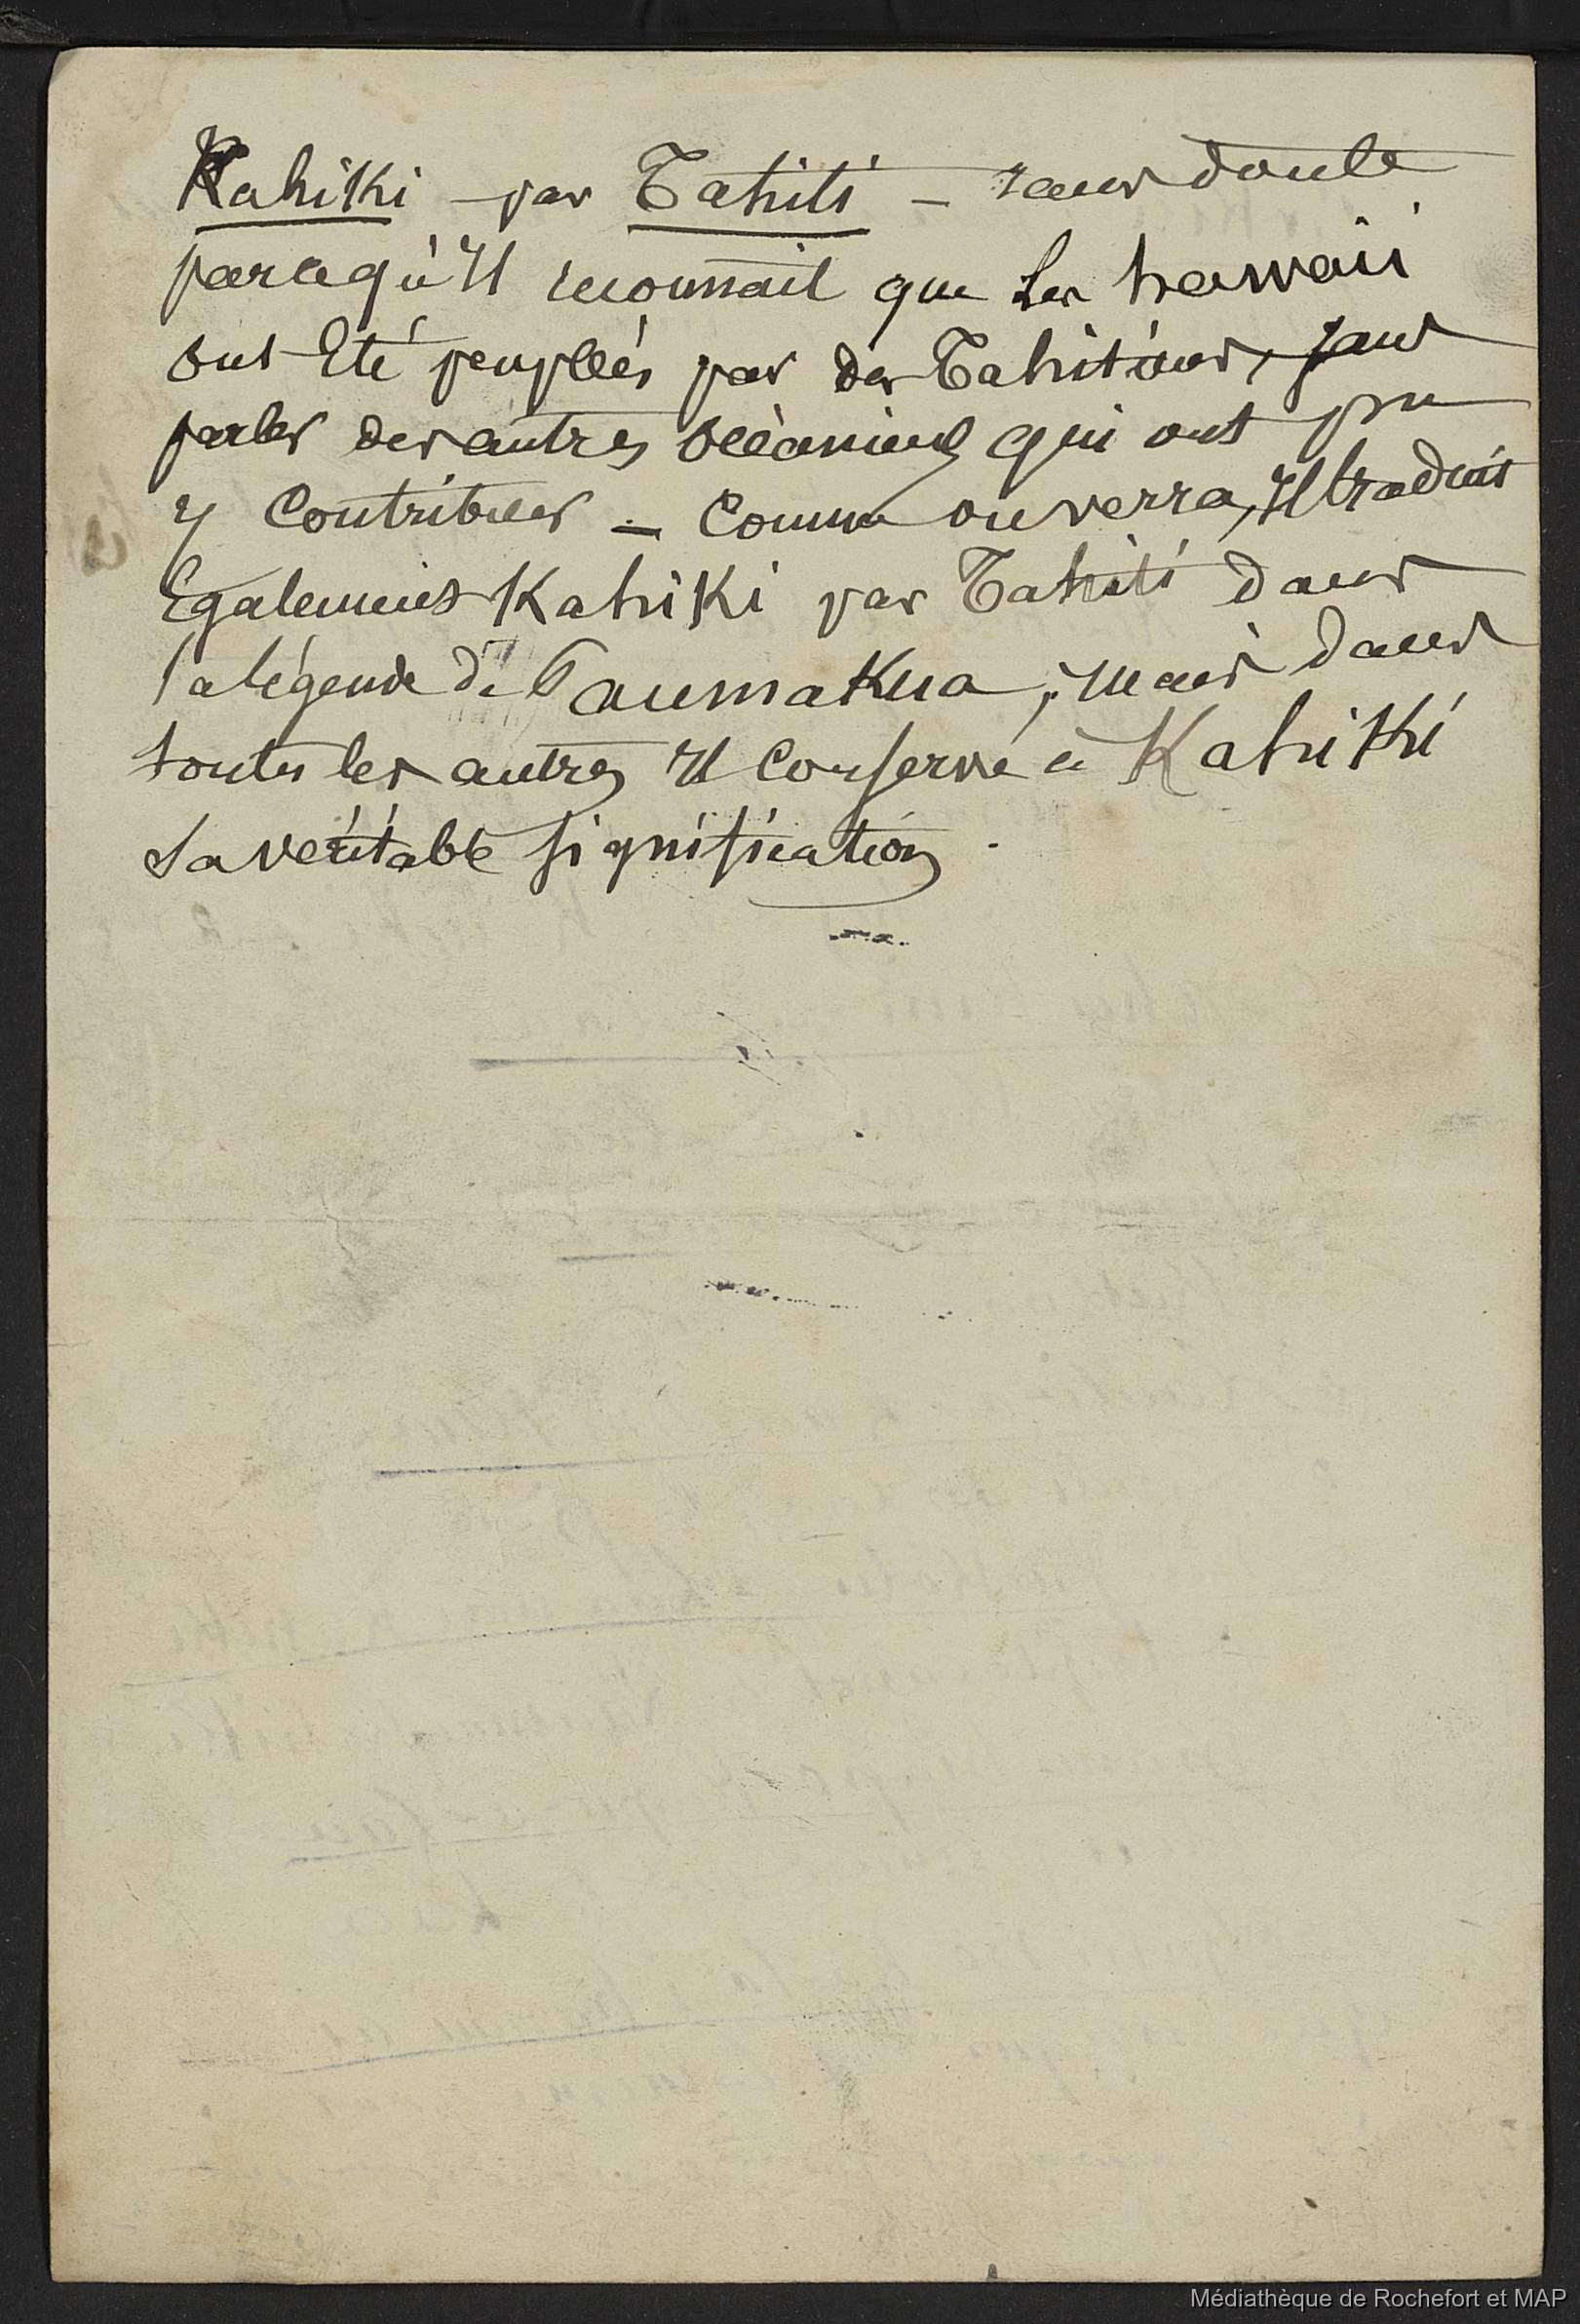 Kahiki – par Tahiti – sans doute
parcequ'il reconnait que les hawaii
ont été peuplées par des Tahitiens, sans
parler des autres océaniens qui ont pu
y contribuer – comme on verra, il traduit
Egalement Kahiki par Tahiti dans
la légende de Paumakua, mais dans
toutes les autres il conserve à Kahiki
sa véritable signification.
Médiathèque de Rochefort et MAP